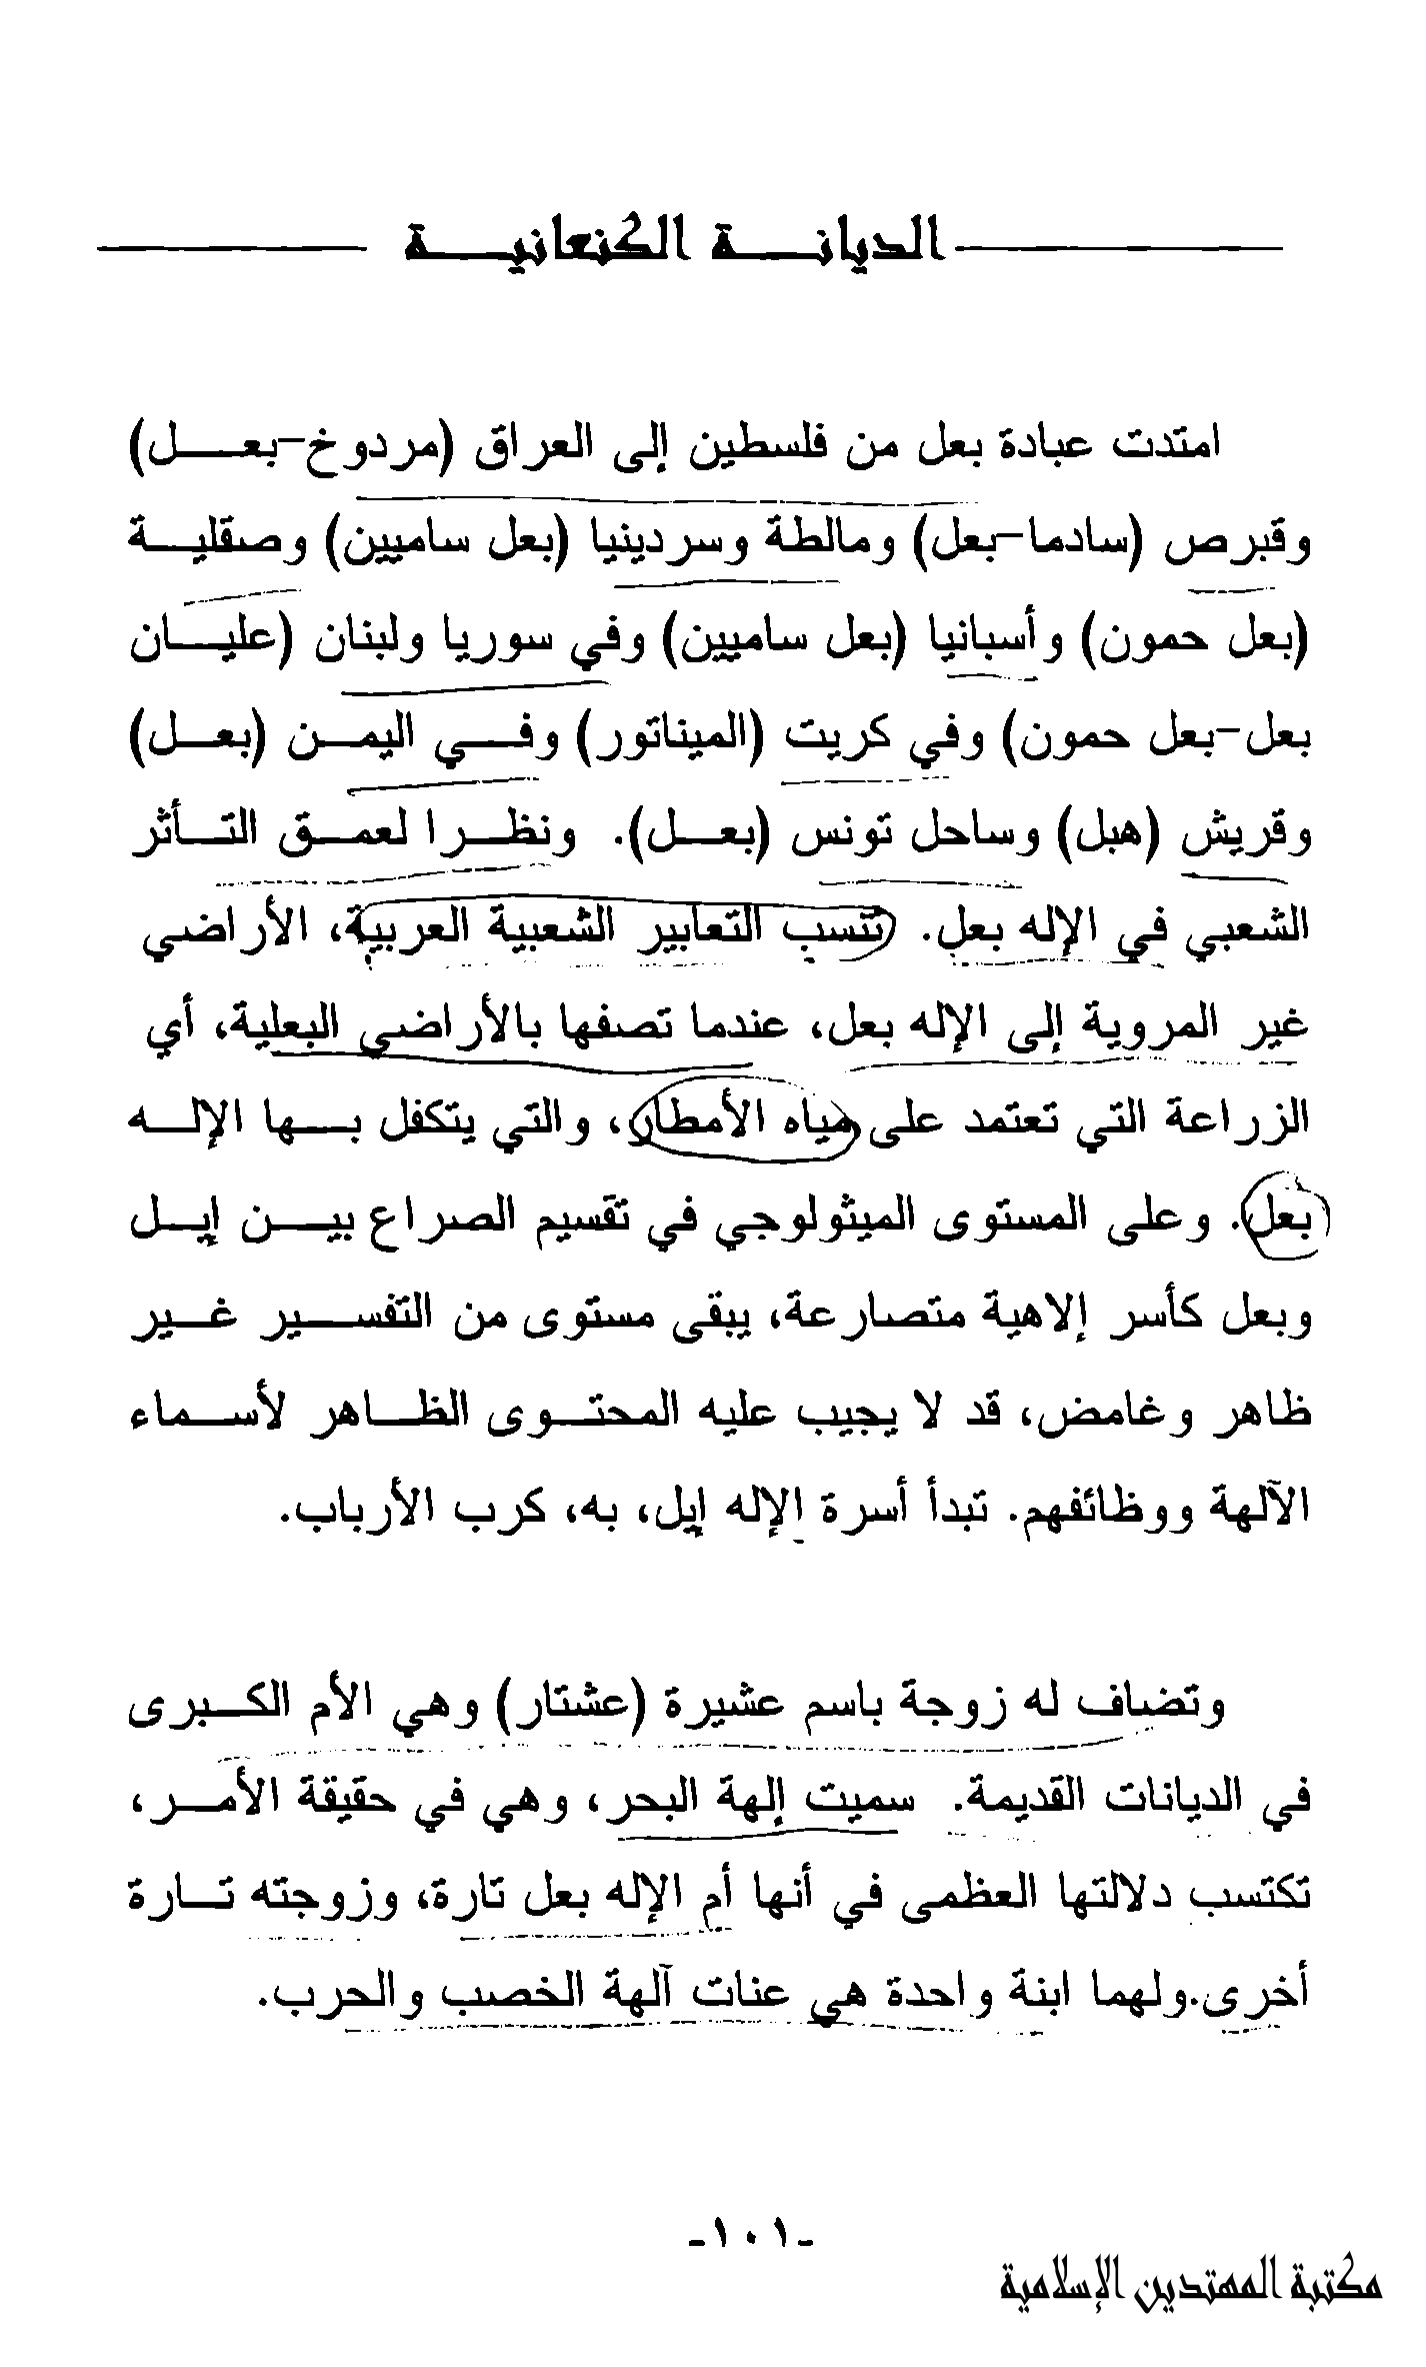 الديانة الكنعانية
امتدت عبادة بعل من فلسطين إلى العراق (مردوخ-بعل)
وقبرص (سادما-بعل) ومالطة وسردينيا (بعل ساميين) وصقلية
(بعل حمون) وأسبانيا (بعل ساميين) وفي سوريا ولبنان (عليان
بعل-بعل حمون) وفي كريت (الميناتور) وفي اليمن (بعل)
وقريش (هبل) وساحل تونس (بعل). ونظرا لعمق التأثر
الشعبي في الإله بعل. تنسب التعابير الشعبية العربية، الأراضي
غير المروية إلى الإله بعل، عندما تصفها بالأراضي البعلية، أي
الزراعة التي تعتمد على مياه الأمطار، والتي يتكفل بها الإله
بعل. وعلى المستوى الميثولوجي في تقسيم الصراع بين إيل
وبعل كأسر إلاهية متصارعة، يبقى مستوى من التفسير غير
ظاهر وغامض، قد لا يجيب عليه المحتوى الظاهر لأسماء
الآلهة ووظائفهم. تبدأ أسرة الإله إيل، به، كرب الأرباب.
وتضاف له زوجة باسم عشيرة (عشتار) وهي الأم الكبرى
في الديانات القديمة. سميت إلهة البحر، وهي في حقيقة الأمر،
تكتسب دلالتها العظمى في أنها أم الإله بعل تارة، وزوجته تارة
أخرى.ولهما ابنة واحدة هي عنات آلهة الخصب والحرب.
-١٠١-
مكتبة المهتدين الإسلامية